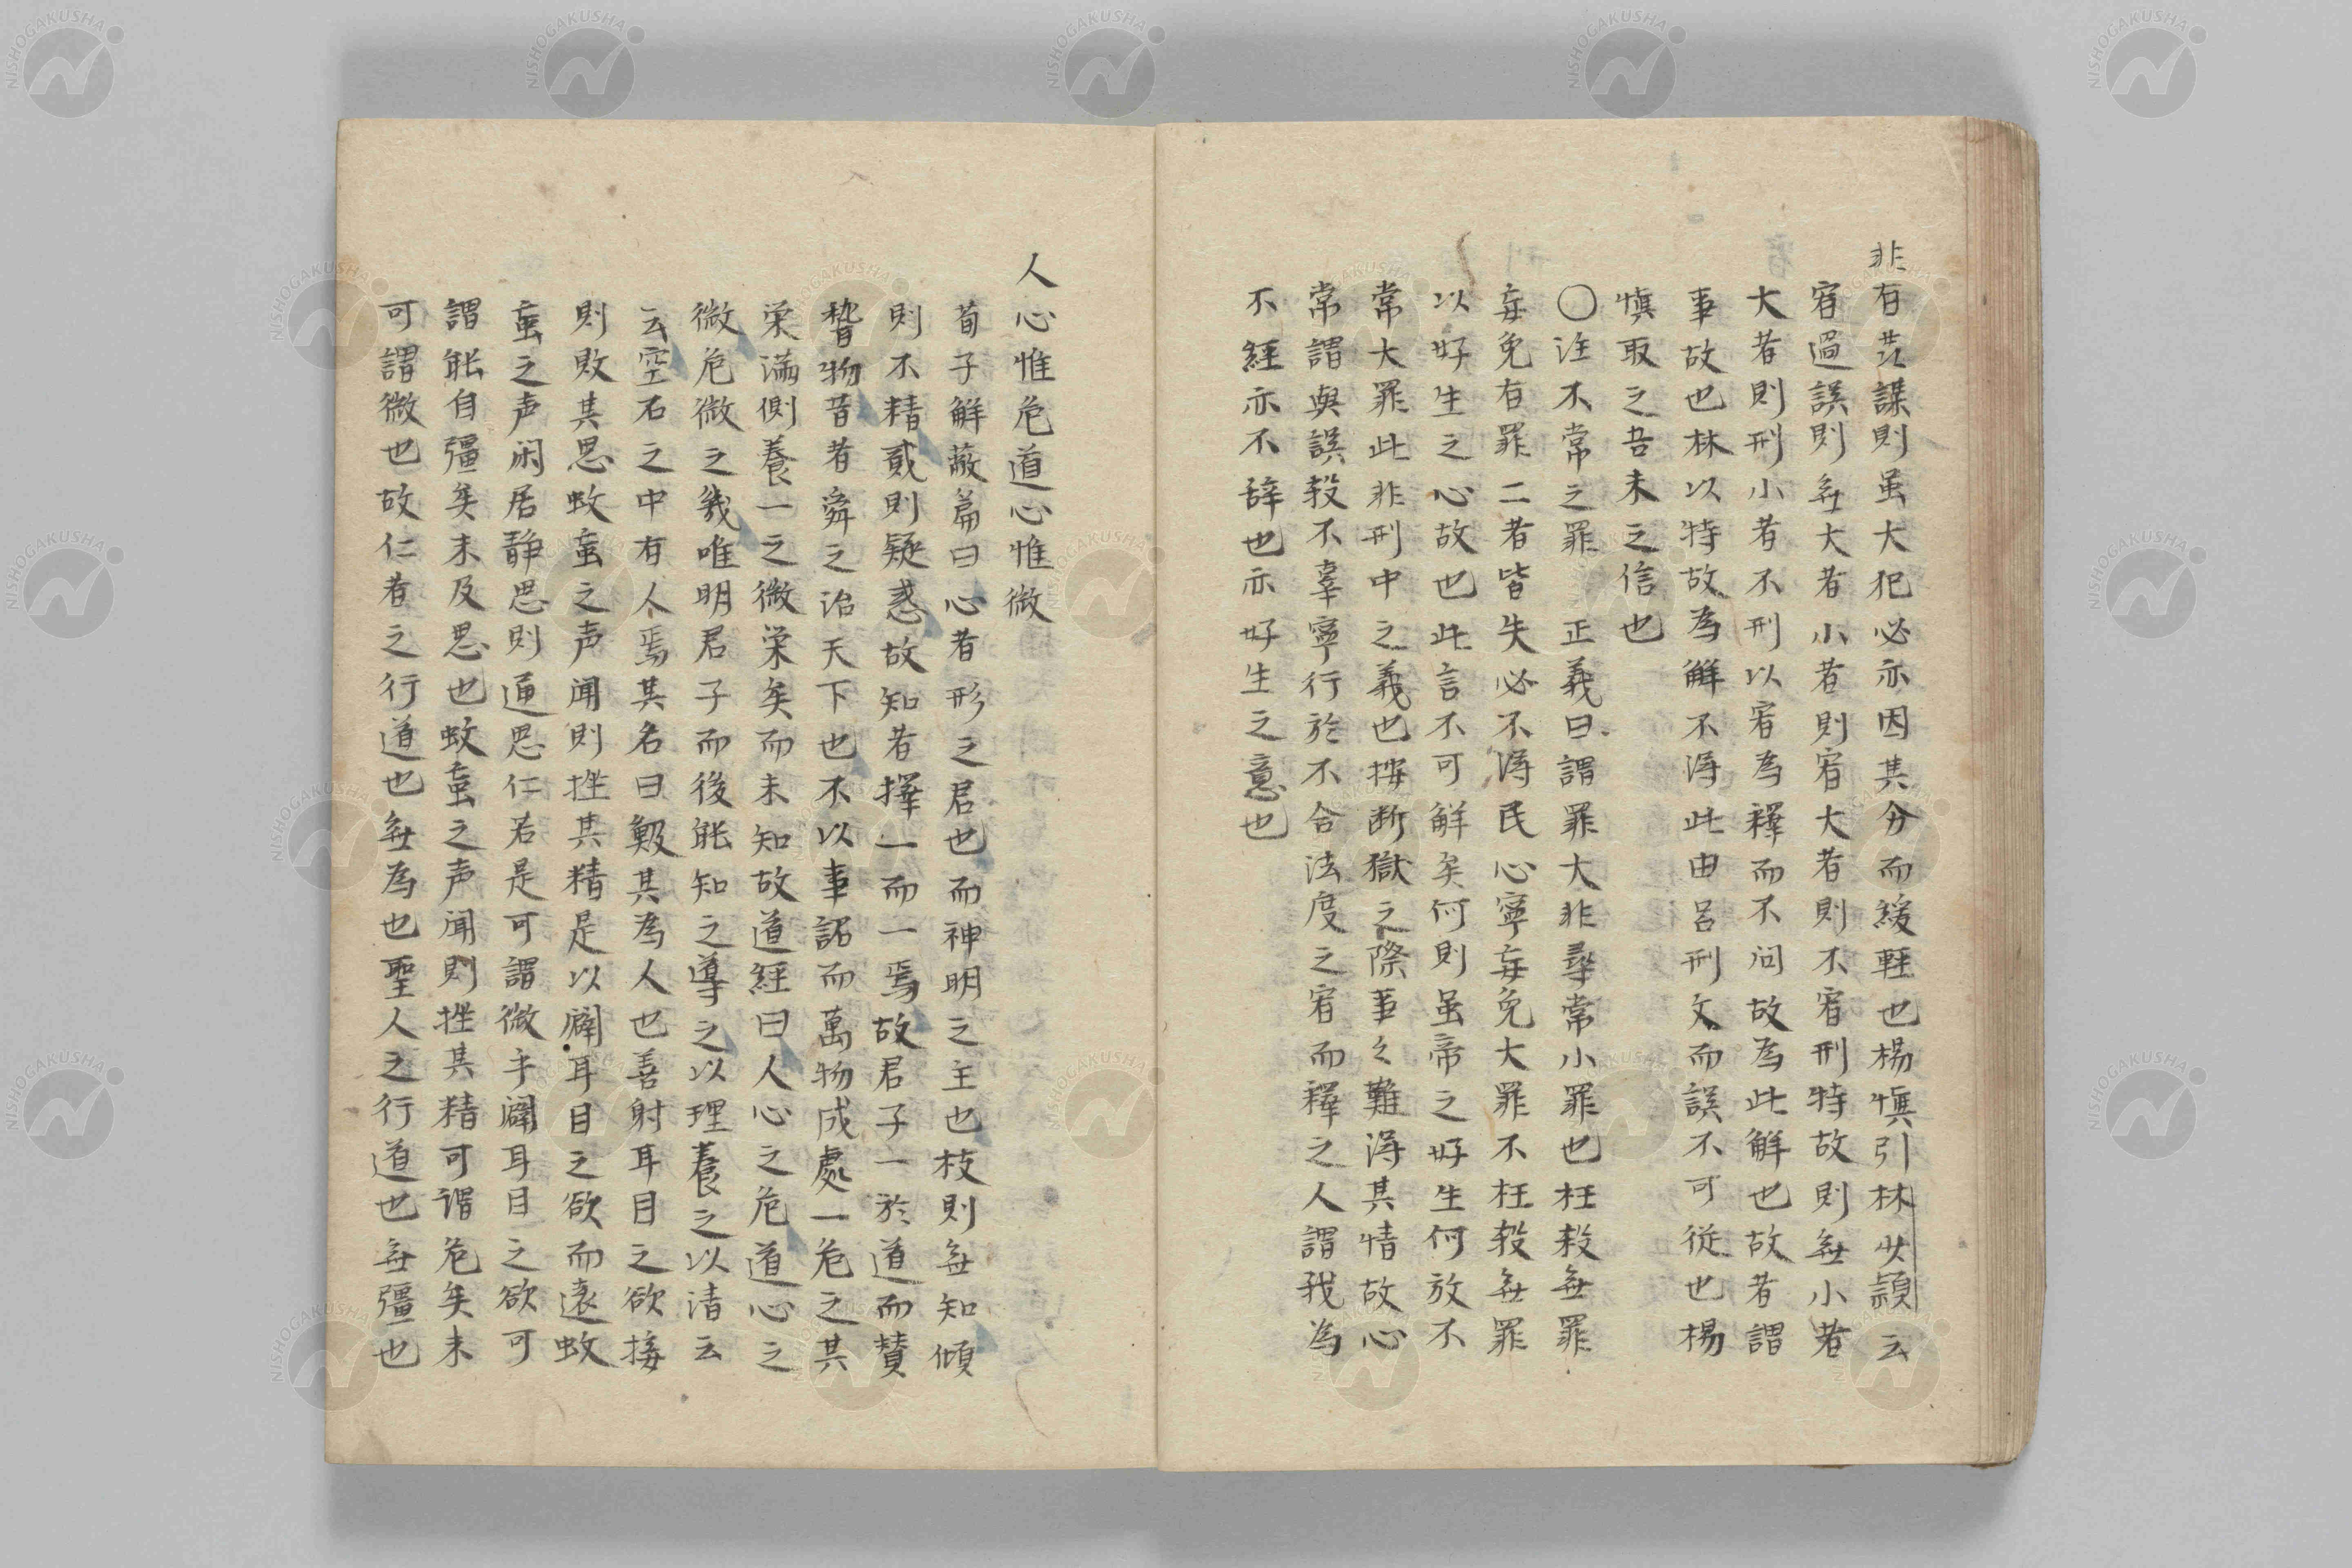 非有共謀則虽大犯必亦因其分而緩軽也楊慎引林少穎云
宥過誤則無大者小者則宥大者則不宥刑特故則無小者
大者則刑小者不刑以宥為釋而不问故為此解也故者謂
事故也林以特故為解不淂此由呂刑文而誤不可従也楊
慎取之吾未之信也
〇注不常之罪正義曰謂罪大非尋常小罪也枉殺無罪
妄免有罪二者皆失必不淂民心寧妄免大罪不枉殺無罪
以好生之心故也此言不可解矣何則虽帝之好生何放不
常大罪此非刑中之義也按断獄之際事之難淂其情故心
常謂與誤殺不辜寧行於不合法度之宥而釋之人謂我為
不經亦不辞也亦好生之意也
人心惟危道心惟微
荀子解蔽篇曰心者形之君也而神明之主也枝則無知傾
則不精貳則疑惑故知者擇一而一焉故君子一於道而賛
稽物昔者舜之治天下也不以事詔而萬物成處一危之其
栄満側養一之微栄矣而未知故道經曰人心之危道心之
微危微之幾唯明君子而後能知之導之以理養之以清云
云空石之中有人焉其名曰觙其為人也善射耳目之欲接
則敗其思蚊䖟之声闻則挫其精是以闢耳目之欲而遠蚊
䖟之声闲居静思則通思仁若是可謂微乎闢耳目之欲可
謂能自彊矣未及思也蚊䖟之声闻則挫其精可謂危矣未
可謂微也故仁者之行道也無為也聖人之行道也無彊也